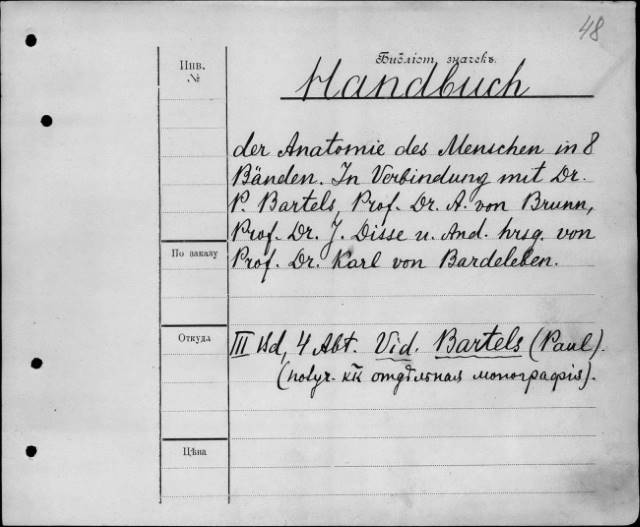 48
Библіот. значекъ.
Инв.
№
Handbuch
der Anatomie des Menschen in 8
Bänden. In Verbindung mit Dr.
P. Bartels, Prof. Dr. A. von Brunn,
Prof. Dr. J. Disse u. And. hrsg. von
По заказу
Prof. Dr. Karl von Bardeleben.
Откуда
III Bd, 4 Abt. Vid. Bartels (Paul).
(получ. отдѣльная монографія).
Цѣна